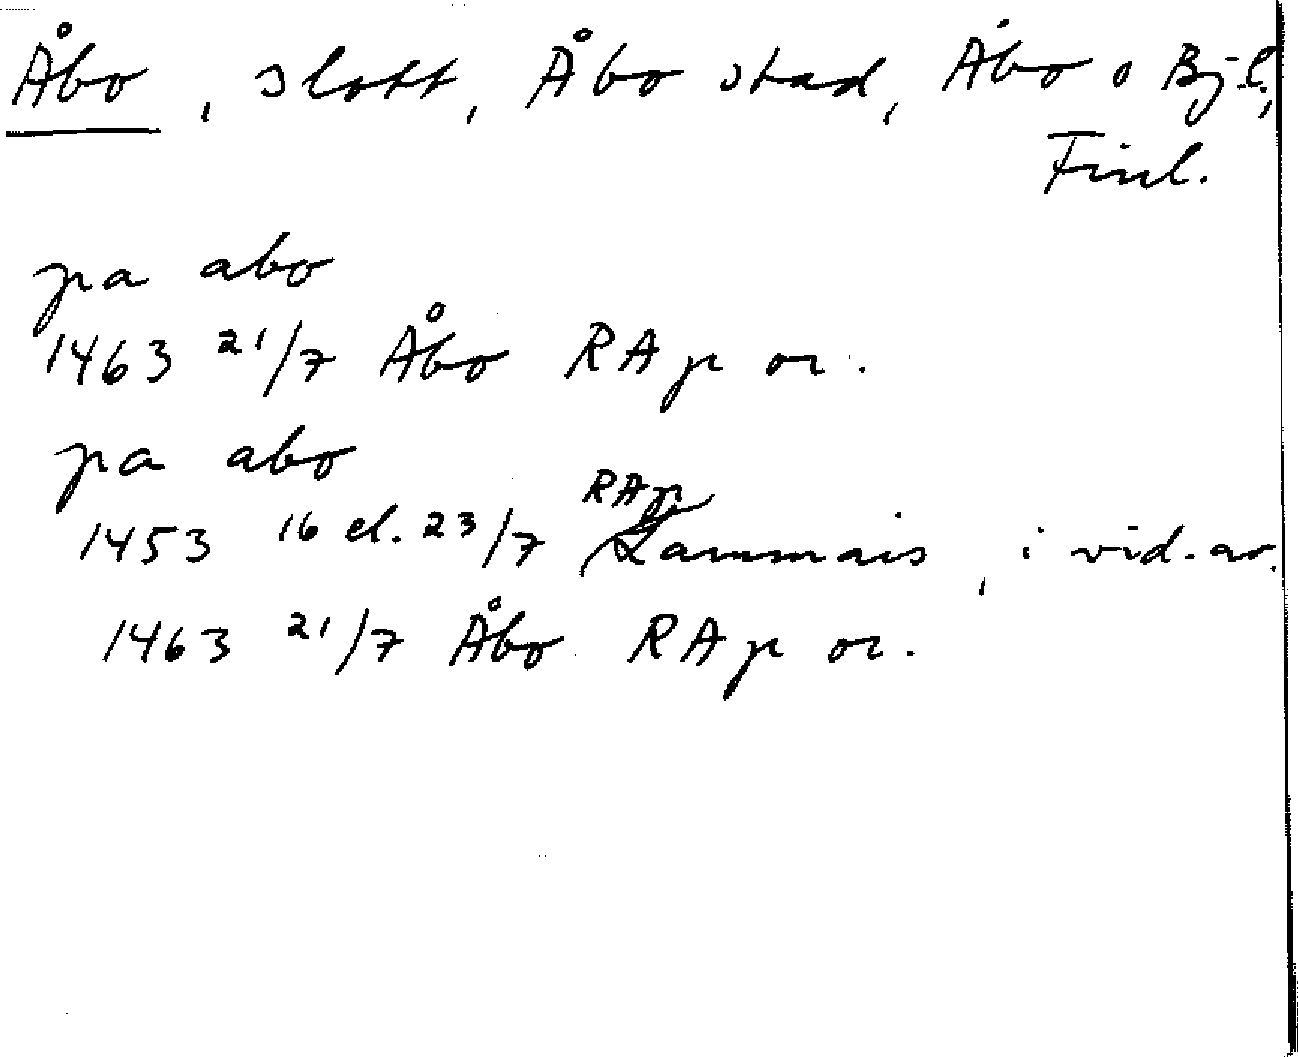 Åbo, slott, Åbo stad, Åbo o Bj-l.,
Finl.
pa abo
1463 21/7 Åbo RAp or.
pa abo
RAp
1453 16 el. 23/7 Lammais, i vid. av.
1463 21/7 Åbo RAp or.